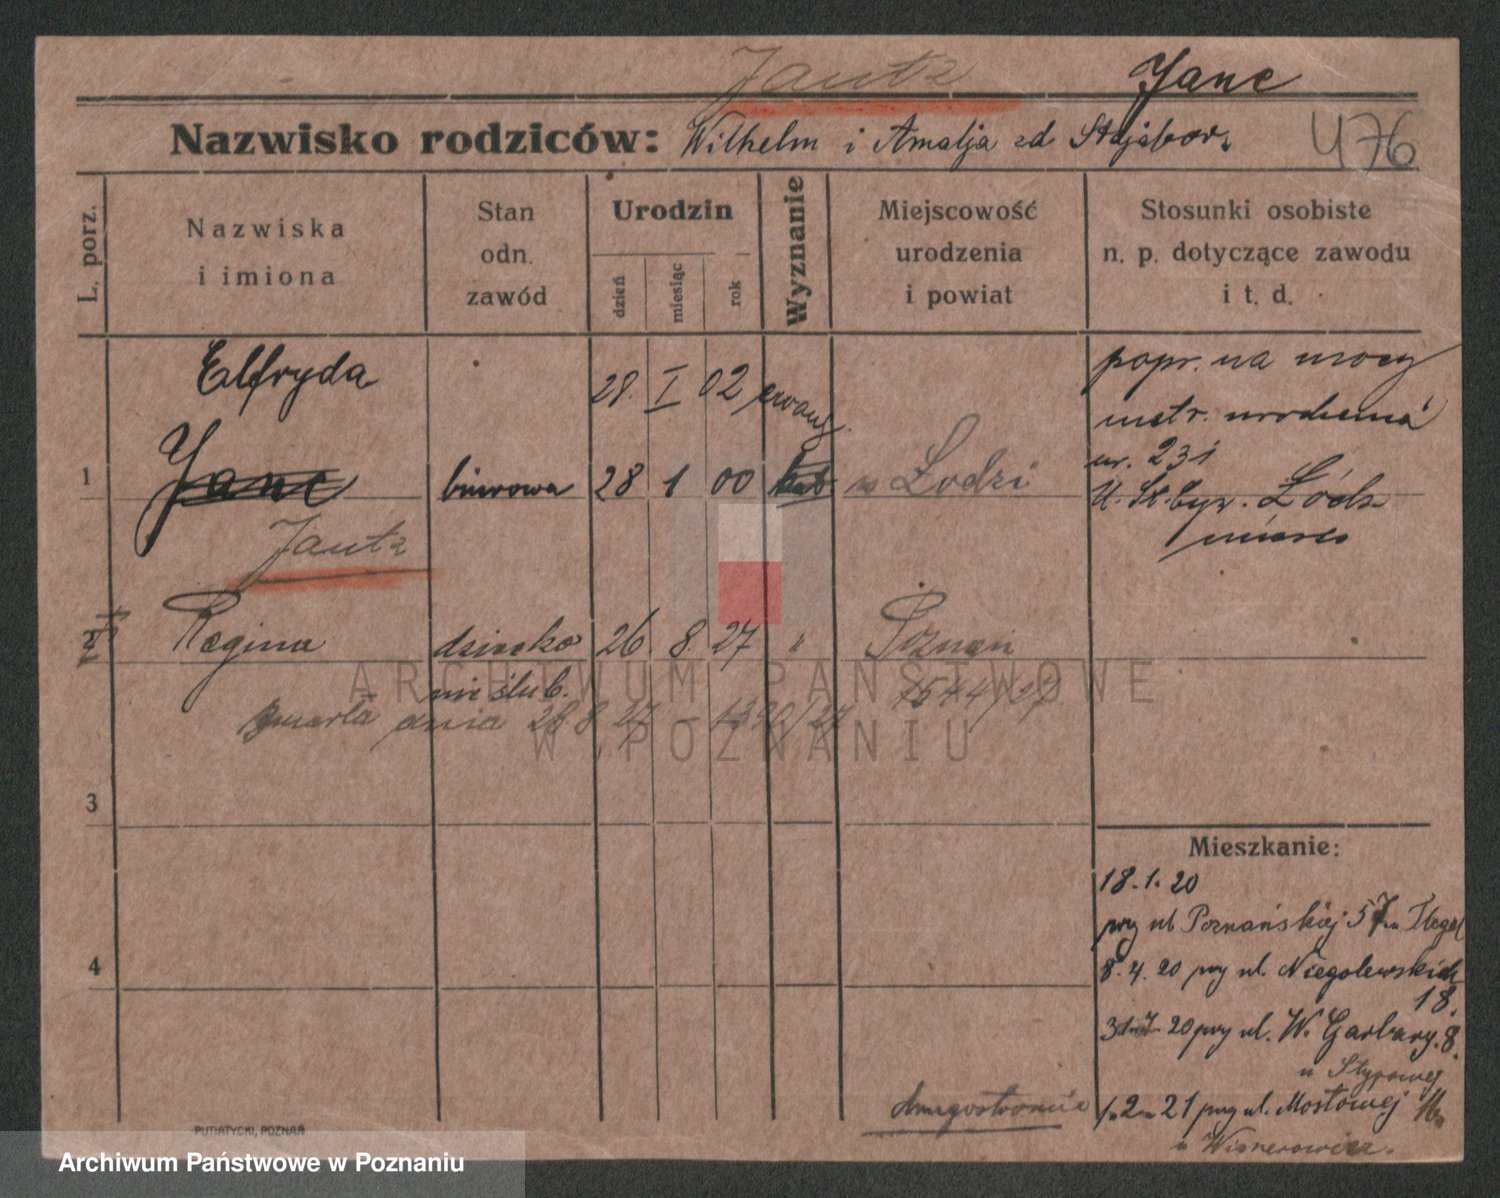 Jautz Janc
Nazwisko rodziców: Wilhelm i Amalja zd
476
L. porz.
Nazwiska
i imiona
Stan
odn.
zawód
Urodzin
dzień
miesiąc
rok
Wyznanie
Miejscowość
urodzenia
i powiat
Stosunki osobiste
n. p. dotyczące zawodu
i t. d.
Elfryda 28. I 02 ewang. popr. na mocy
metr. urodzenia
1 Janc biurowa 28 1 00 kat w Łodzi nr. 231
U. St. Cyw. Łódź
miasto
Jautz
2 Regina dziecko 26 8 27 " Poznań
nieślub. 1544/27
zmarła dnia 28 8 27
3
4
Mieszkanie:
18.1.20
przy ul Poznańskiej 57
8.4.20 przy ul. Niegolewskich
18.
20 przy ul. W. Garbary. 8.
u
1.2.21 przy ul. Mostowej
u
drugostronnie
PUTIATYCKI, POZNAŃ
ARCHIWUM PAŃSTWOWE
W POZNANIU
Archiwum Państwowe w Poznaniu